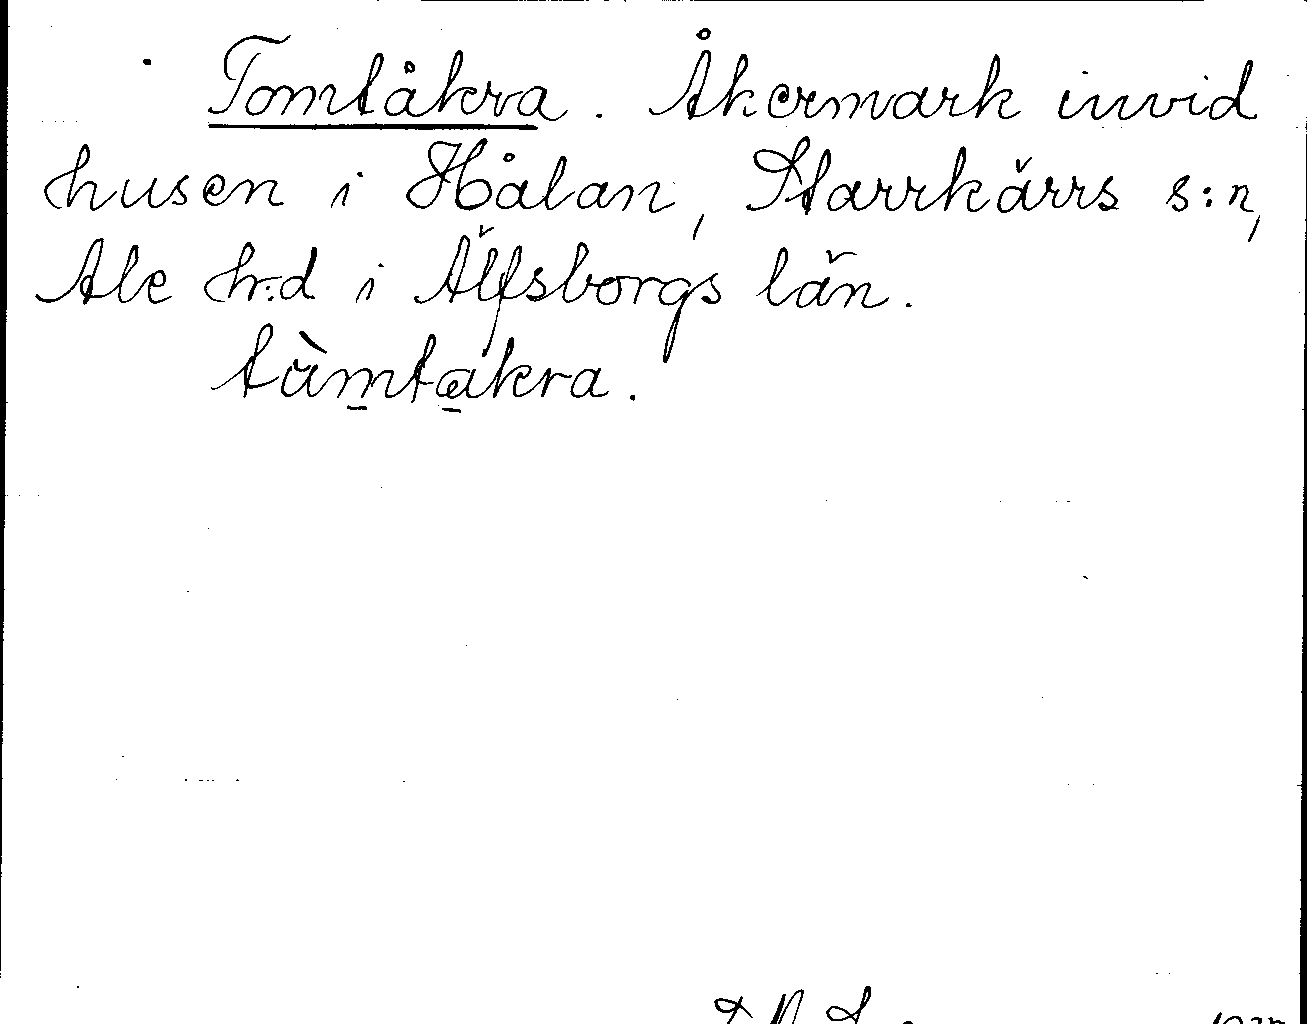 Tomtåkra. Åkermark invid
husen i Hålan, Starrkärrs s:n,
Ale h:d i Älfsborgs län.
tùmtakra.